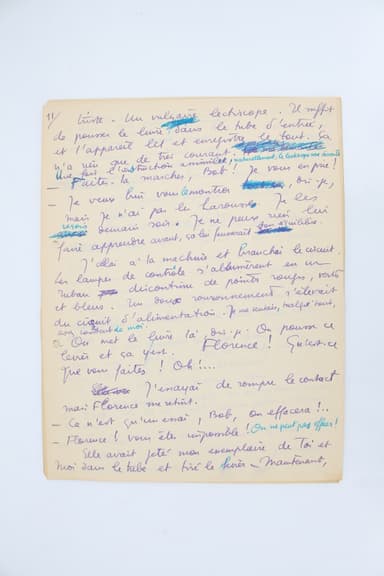 11/ triste. Un vulgaire lectiscope. Il suffit
de pousser le livre dans le tube d'entrée,
et l'appareil lit et enregistre le tout. Ça
n'a rien que de très courant.
Une fois l'instruction assimilée, naturellement, le lectiscope
- Faites-le marcher, Bob! Je vous en prie!
- Je veux bien vous le montrer, dis-je,
mais je n'ai pas les Larousse. Je les
reçois demain soir. Je ne peux rien lui
faire apprendre avant, ça lui fausserait son équilibre
J'allai à la machine et branchai le circuit.
Les lampes de contrôle s'allumèrent en un
ruban discontinu de points rouges, verts
et bleus. Un doux ronronnement s'élevait
du circuit d'alimentation. Je me sentais, malgré tout,
assez content de moi.
- On met le livre là, dis-je. On pousse ce
levier et ça y est. Florence! Qu'est-ce
que vous faites! Oh!...
J'essayai de rompre le contact
mais Florence me retint.
- Ce n'est qu'un essai, Bob, on effacera!..
- Florence! vous êtes impossible! On ne peut pas effacer!
Elle avait jeté mon exemplaire de Toi et
Moi dans le tube et tiré le levier. Maintenant,